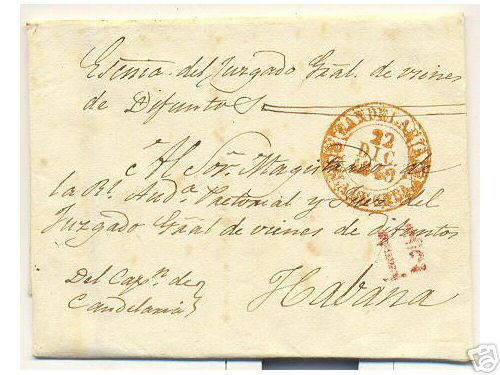 Escnía. del Juzgado Gral. de vienes
de Difuntos
Al Sor. Magistrado de
la Rl. Auda. Pretorial y Juez del
Juzgado Gral de vienes de difuntos
Del Capn. de
Candelaria
Habana
CANDELARIA
22
DIC
1849
ebY